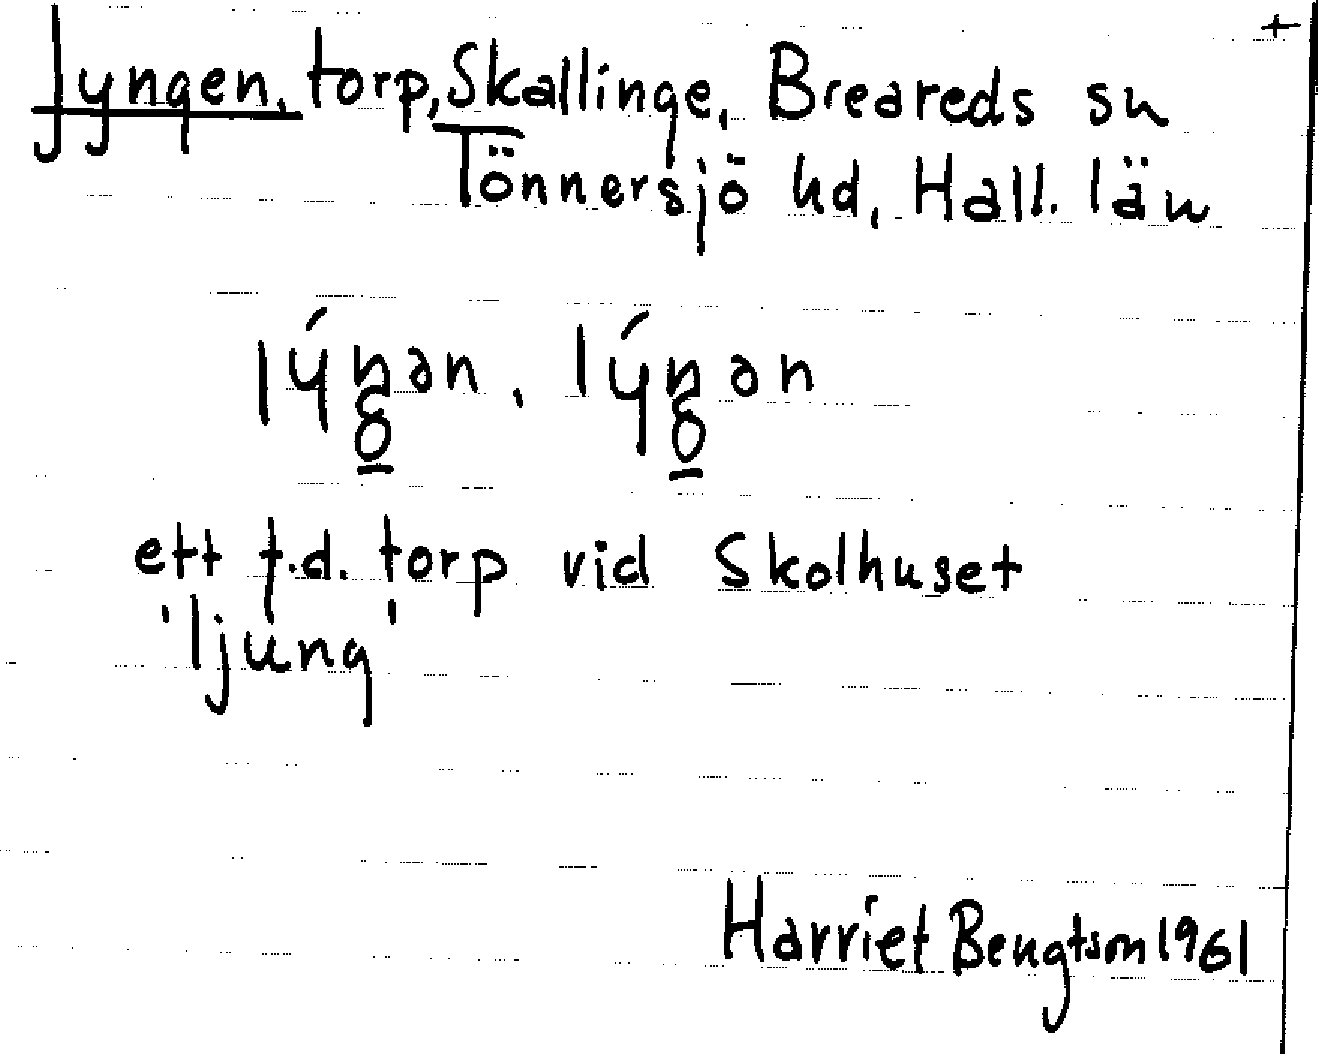 +
Jyngen, torp, Skallinge, Breareds sn
Tönnersjö hd, Hall. län
ett f.d. torp vid Skolhuset
'ljung'
Harriet Bengtson 1961